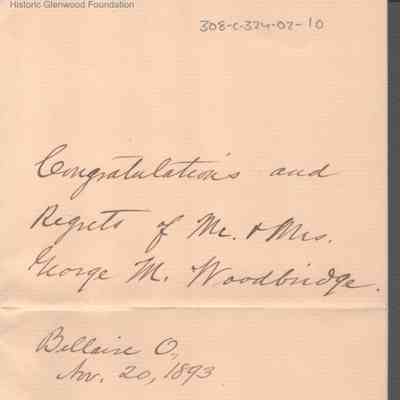 Historic Glenwood Foundation
308-C-324-02-10
Congratulations and
Regrets of Mr. & Mrs.
George M. Woodbridge.
Bellaire O.,
Nov. 20, 1893